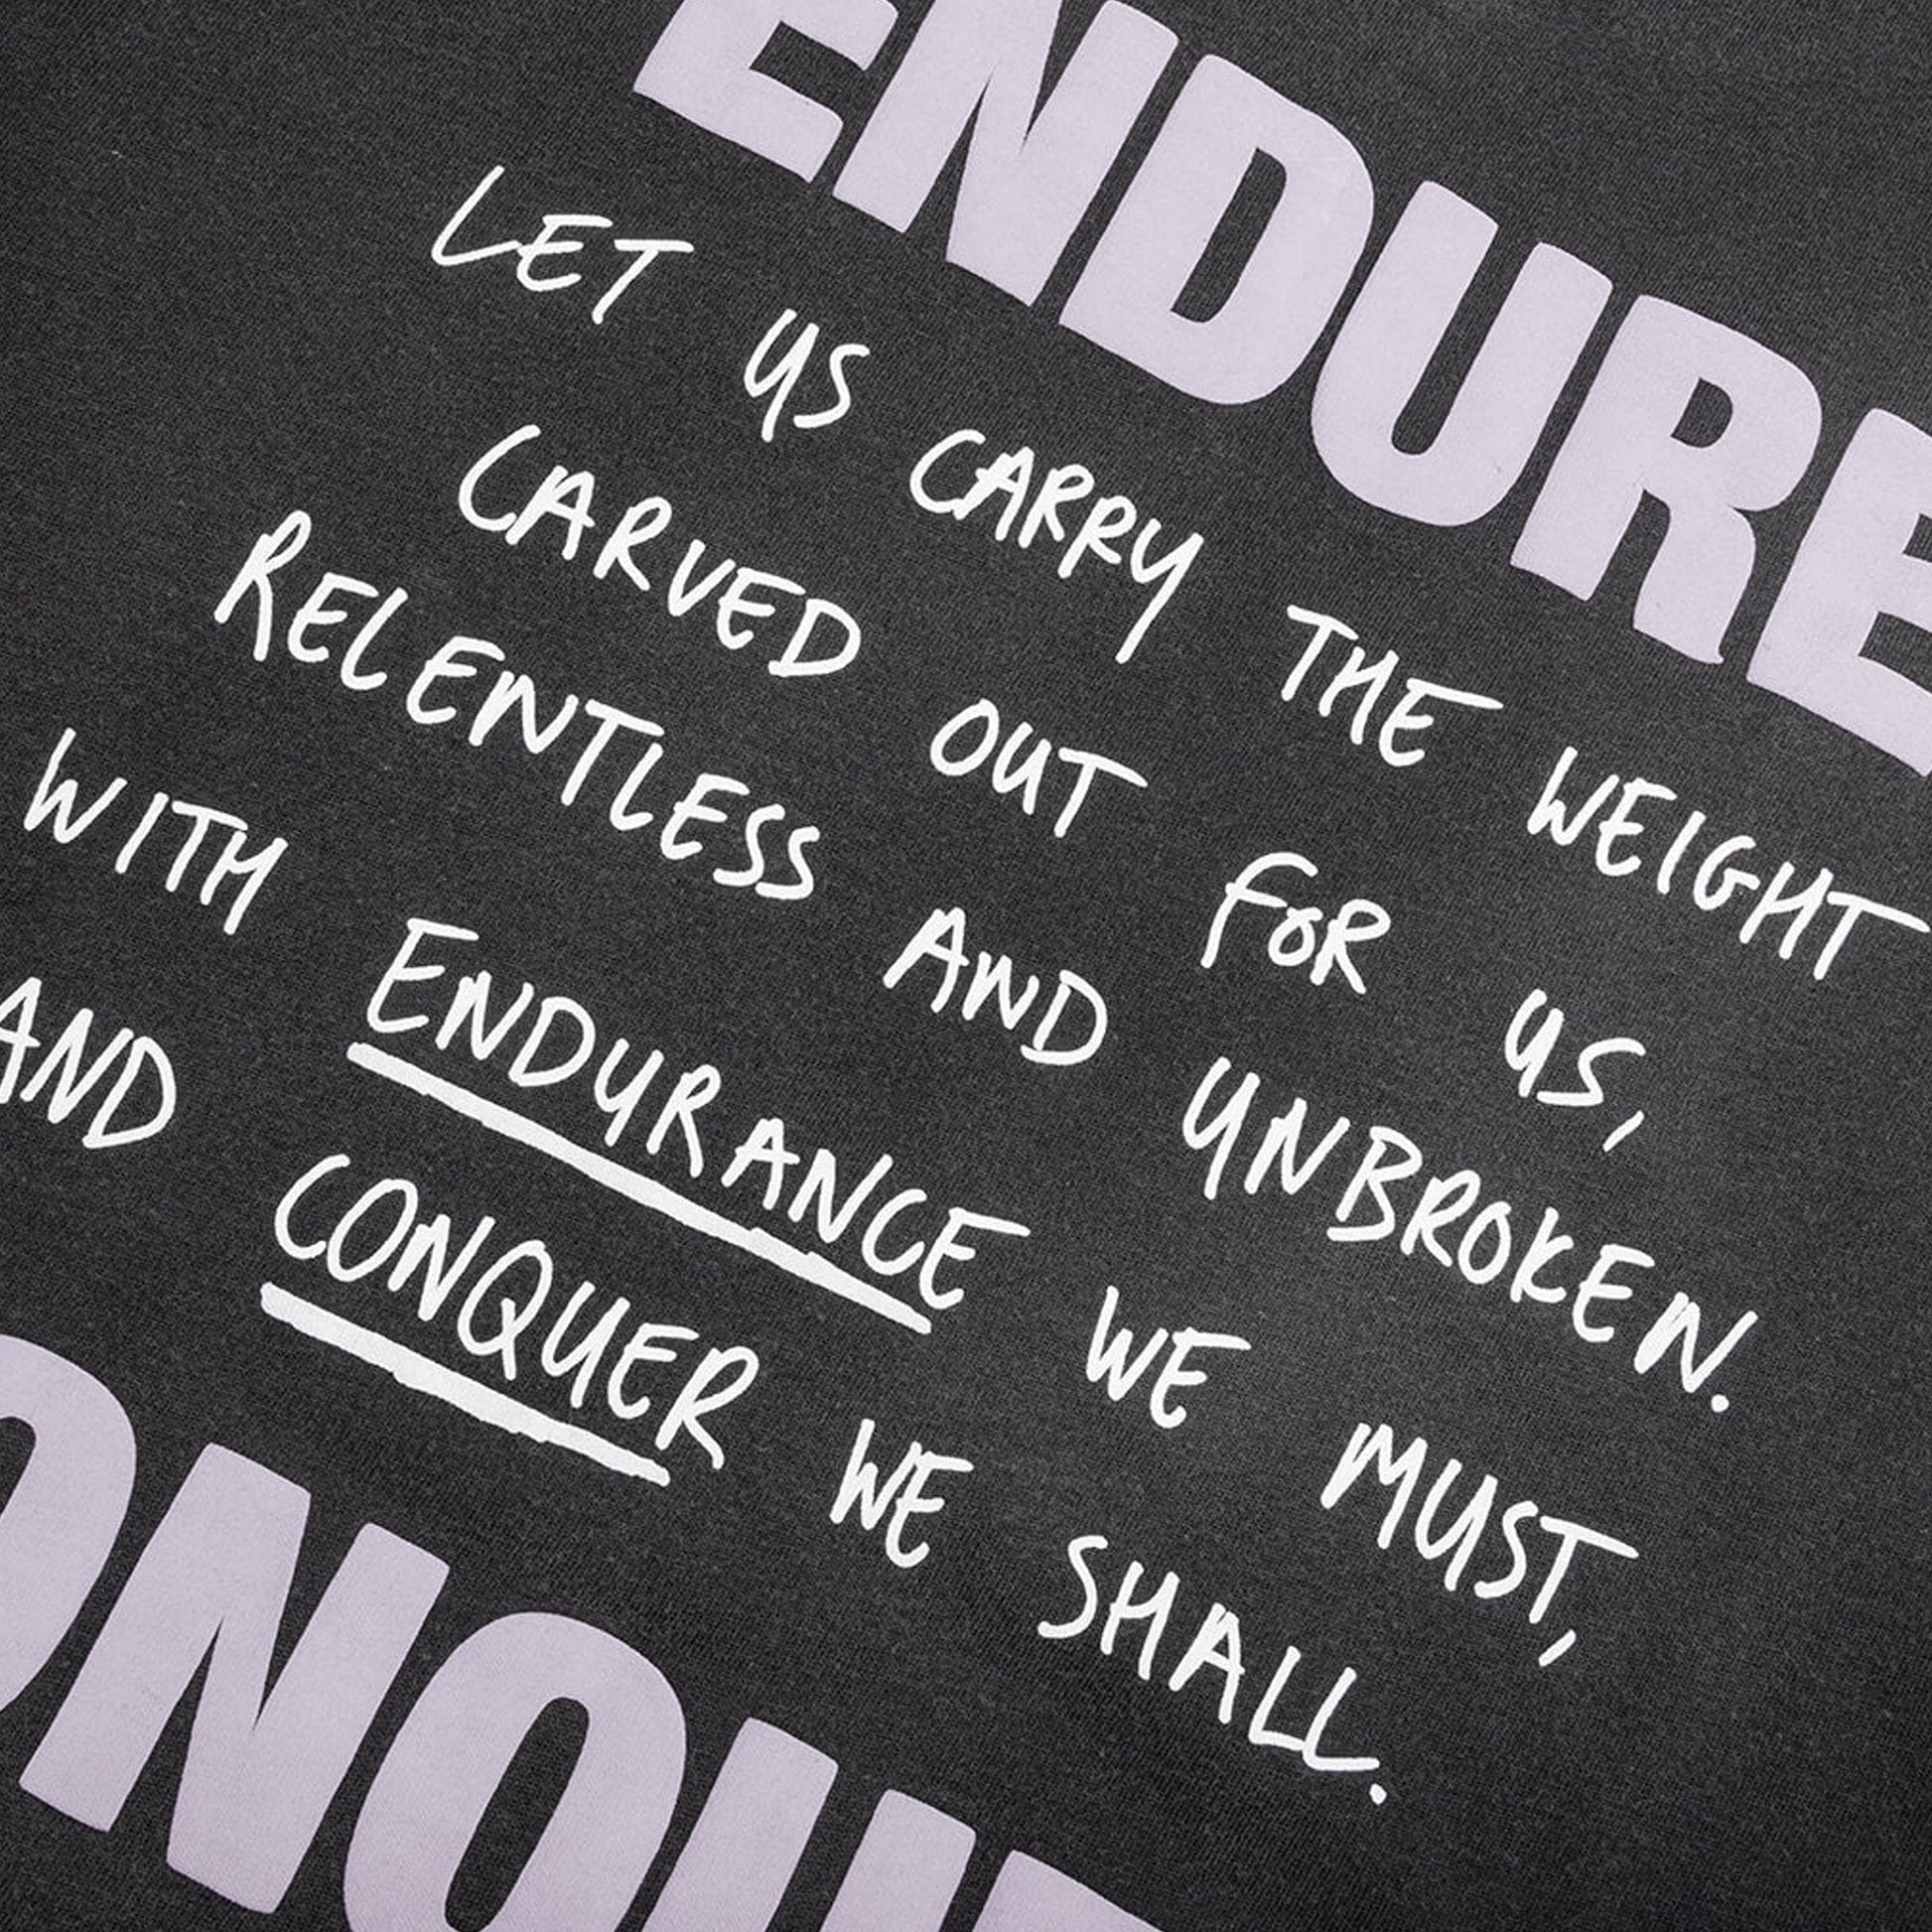 ENDURE
LET US CARRY THE WEIGHT
CARVED OUT FOR US,
RELENTLESS AND UNBROKEN.
WITH ENDURANCE WE MUST,
AND CONQUER WE SHALL.